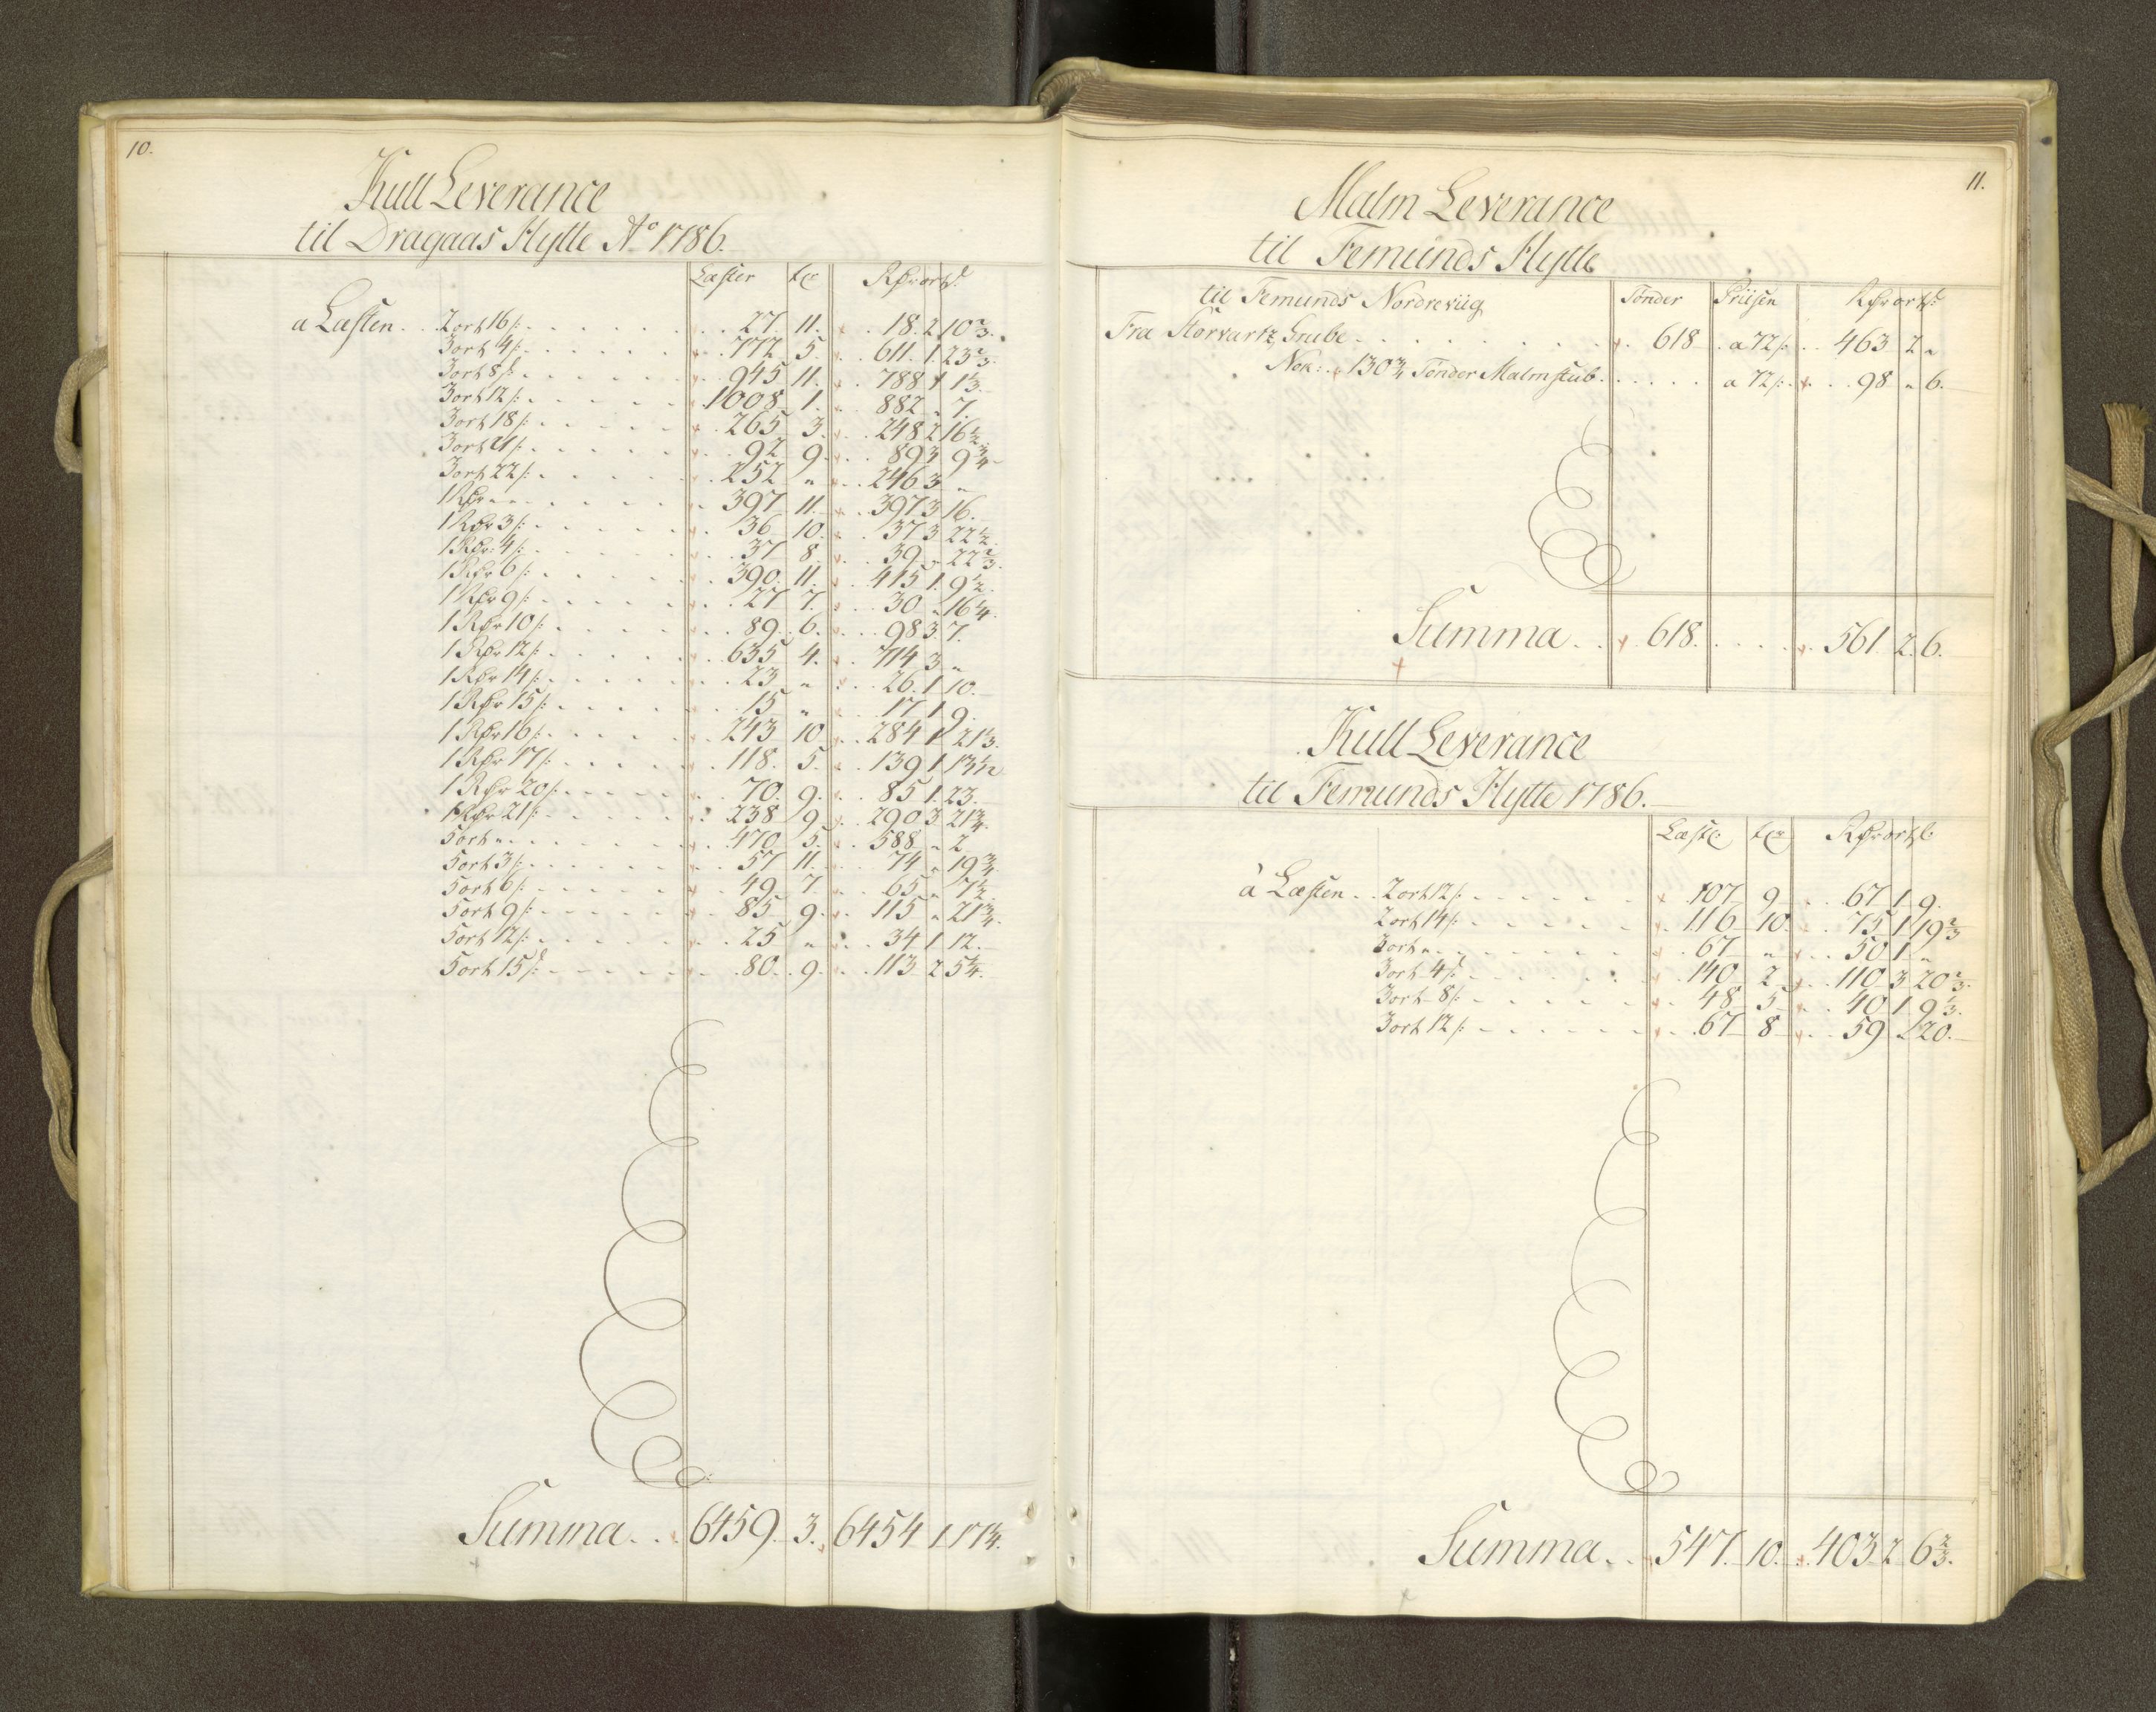 10.
Kull Leverance
til Dragaas Hytte Ao 1786.
Læster tr Rdr ort s
a Læsten. 2 ort 16 s: 27. 11. 18. 2 10 2/3.
3 ort 4 s: 772 5. 611. 1 23 2/3.
3 ort 8 s: 945 11. 788 1 1 1/3.
3 ort 12 s: 1008 1. 882 " 7.
3 ort 18 s: 265 3. 248 2 16 1/2.
3 ort 21 s: 92 9. 89 3 9 3/4
3 ort 22 s: 252 " 246 3 "
1 Rdr " 397 11. 397 3 16.
1 Rdr 3 s: 36 10. 37 3 22 1/2.
1 Rdr 4 s: 37 8 39 " 22 2/3.
1 Rdr 6 s: 390. 11. 415 1 9 1/2.
1 Rdr 9 s: 27 7. 30 " 16 1/4.
1 Rdr 10 s: 89. 6. 98 3 7.
1 Rdr 12 s: 635 4. 714 3 "
1 Rdr 14 s: 23 " 26. 1 10.
1 Rdr 15 s: 15 " 17 1 9.
1 Rdr 16 s: 243 10 284 1 21 1/3.
1 Rdr 17 s: 118. 5. 139 1
1 Rdr 20 s: 70. 9. 85 1. 23.
1 Rdr 21 s: 238 9 290 3 21 3/4.
5 ort " 470 5. 588 " 2
5 ort 3 s: 57 11. 74 " 19 3/4.
5 ort 6 s: 49 7. 65 " 7 1/2.
5 ort 9 s: 85 9. 115 " 21 3/4.
5 ort 12 s: 25 " 34 1 12.
5 ort 15 s: 80. 9. 113 2 5 1/4.
Summa. 6459. 3. 6454 1 17 1/4.
11.
Malm Leverance
til Femunds Hytte
til Femunds Nordreviig Tønder Priisen Rdr ort s
Fra Storvartz Grube 618 a 72 s: 463 2 "
Nok: 130 3/4 Tønder Malmstub. a 72 s: 98 " 6.
Summa. 618. 561. 2. 6.
Kull Leverance
til Femunds Hytte 1786.
Læstr tr Rdr ort s
à Læsten. 2 ort 12 s: 107 9 67 1 9.
2 ort 14 s: 116 10. 75 1 19 2/3
3 ort " 67 " 50 1 "
3 ort 4 s: 140 2 110 3 20 2/3.
3 ort 8 s: 48 5 40 1 9 1/3.
3 ort 12 s: 67 8 59 " 20.
Summa. 547. 10. 403 2 6 2/3.